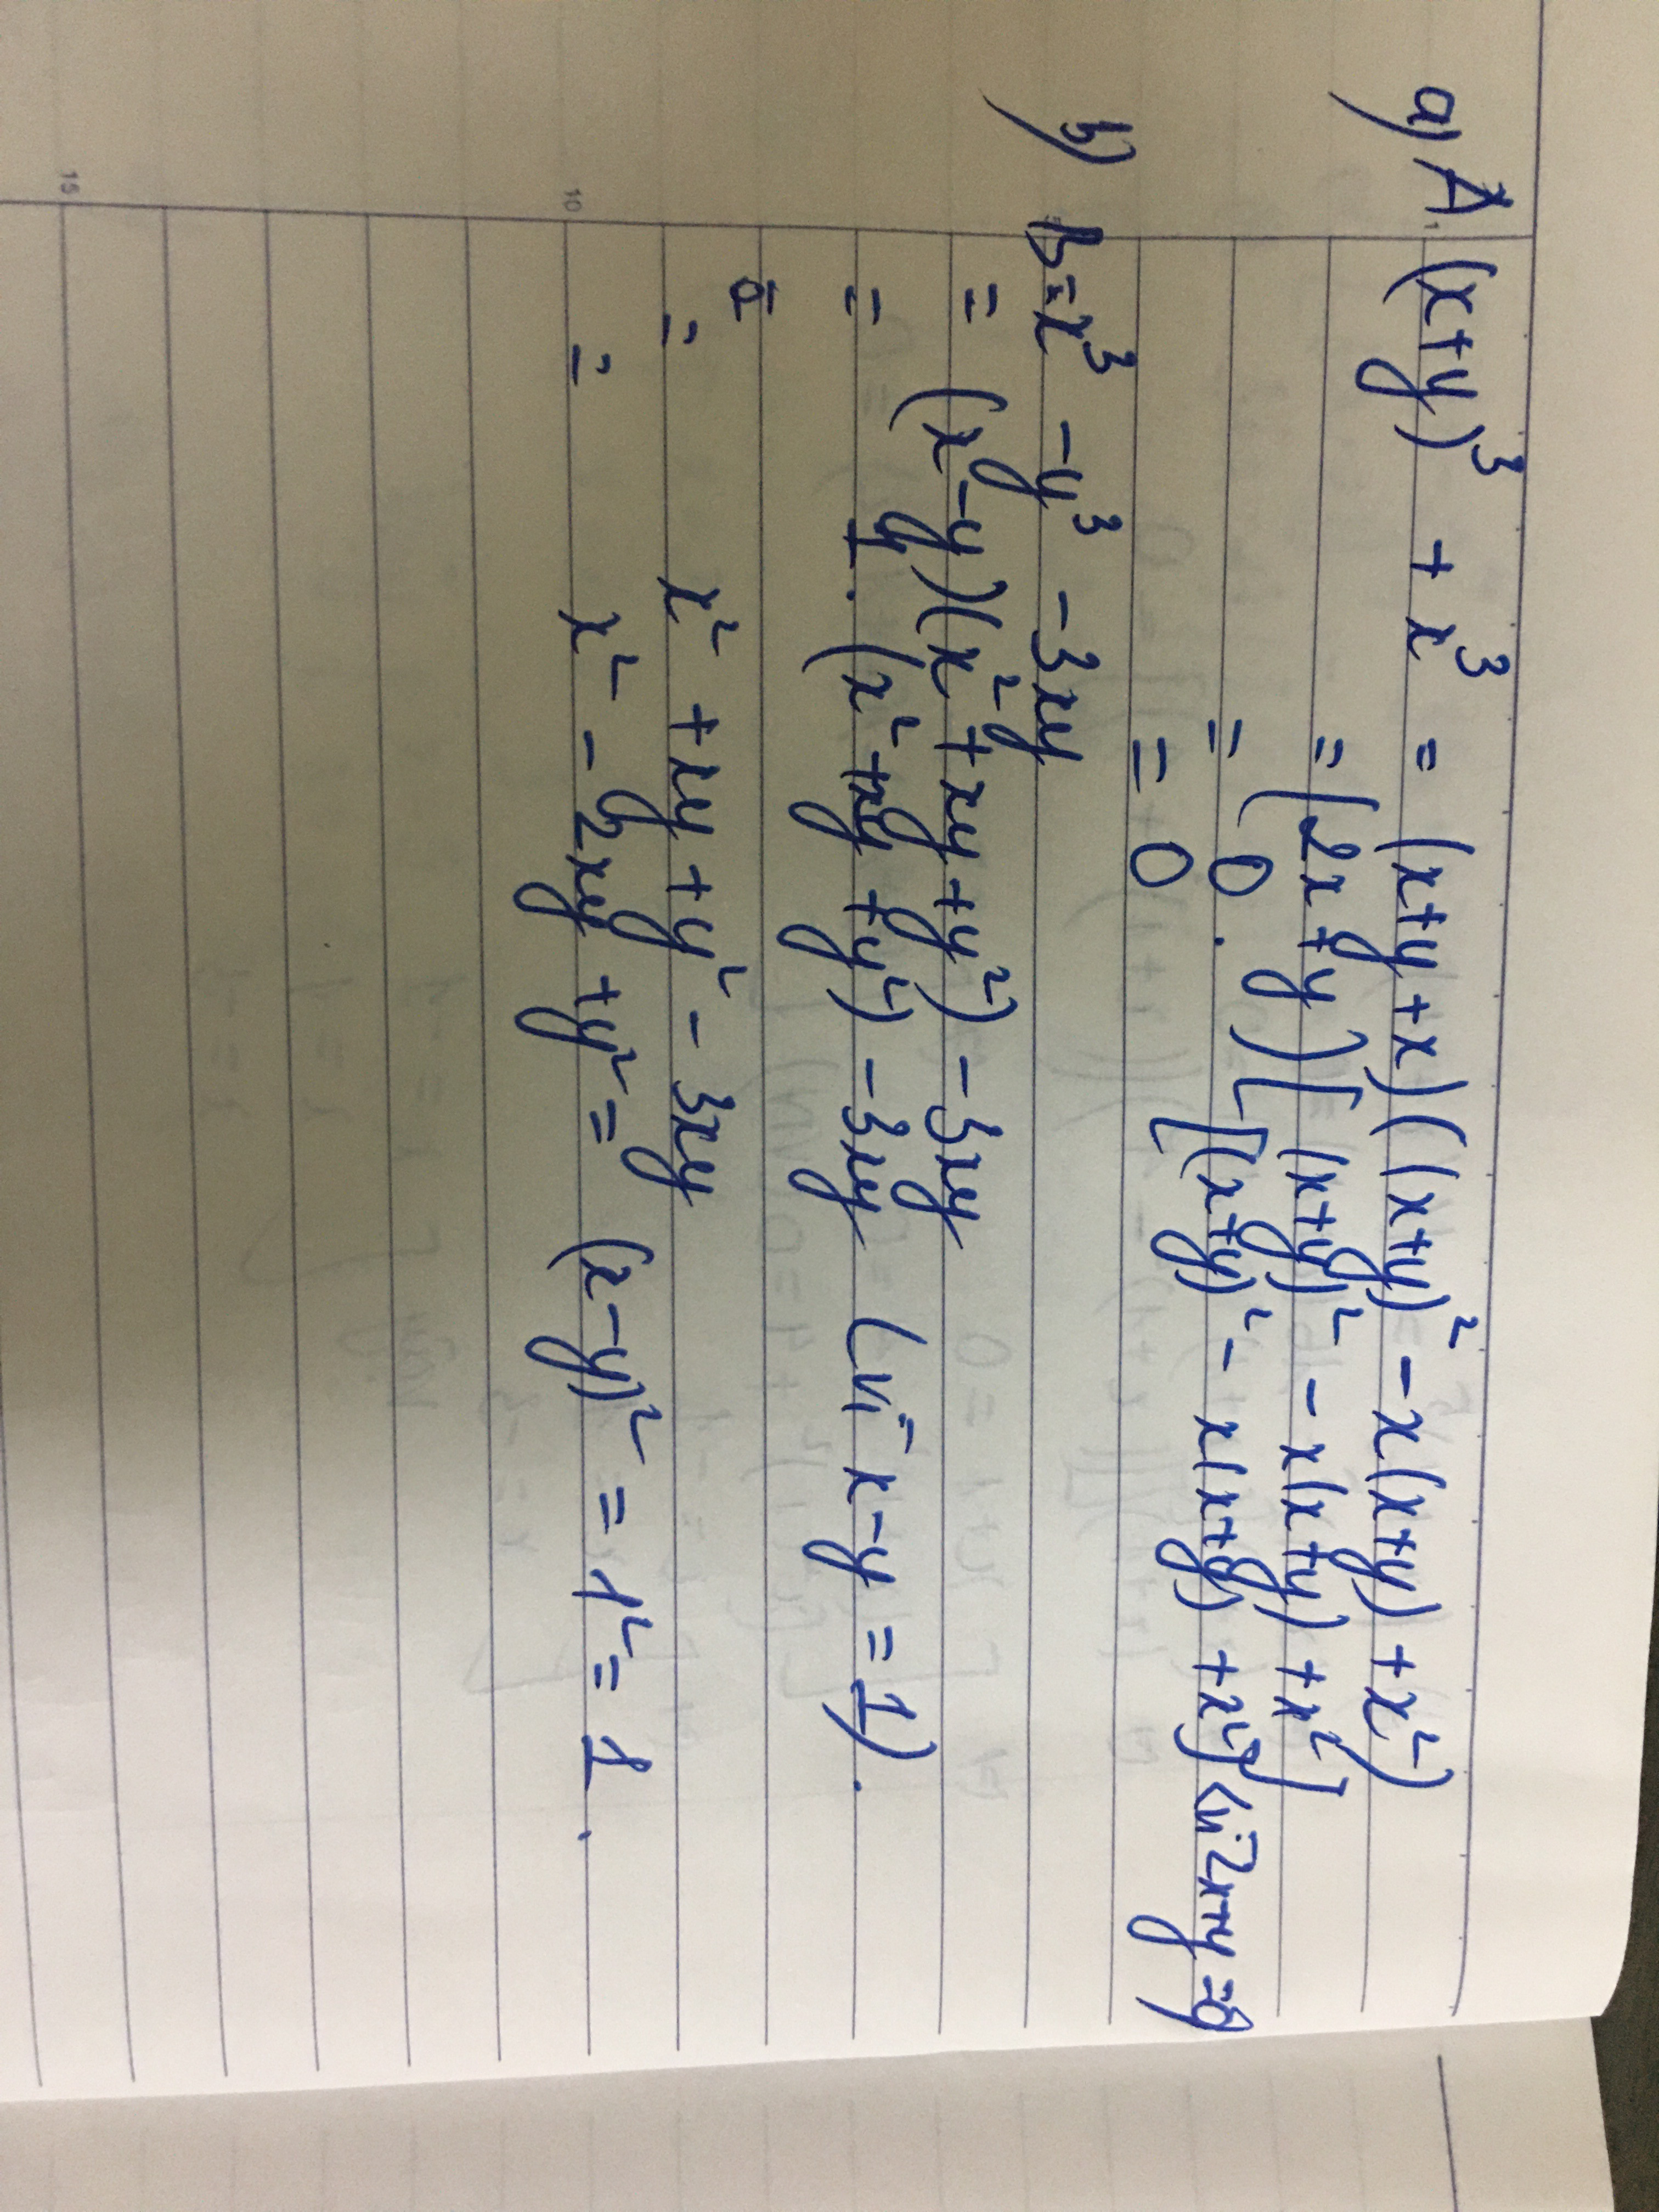 a) A (x+y)³ + x³ = (x+y+x)((x+y)² - x(x+y) + x²)
= (2x+y)[(x+y)² - x(x+y) + x²]
= 0 . [(x+y)² - x(x+y) + x²] (vì 2x+y=0)
= 0
b) b = x³ - y³ - 3xy
= (x-y)(x² + xy + y²) - 3xy
= 1. (x² + xy + y²) - 3xy (vì x-y = 1).
= x² + xy + y² - 3xy
= x² - 2xy + y² = (x-y)² = 1² = 1.
10
15